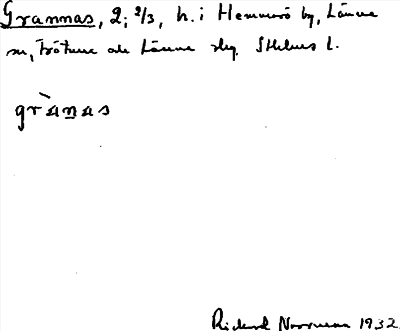 Grannas, 2; 2/3, h. i Hemmesö by, Länna
sn, Frötuna och Länna skg. Sthlms l.
grànas
Rickard Norrman 1932.